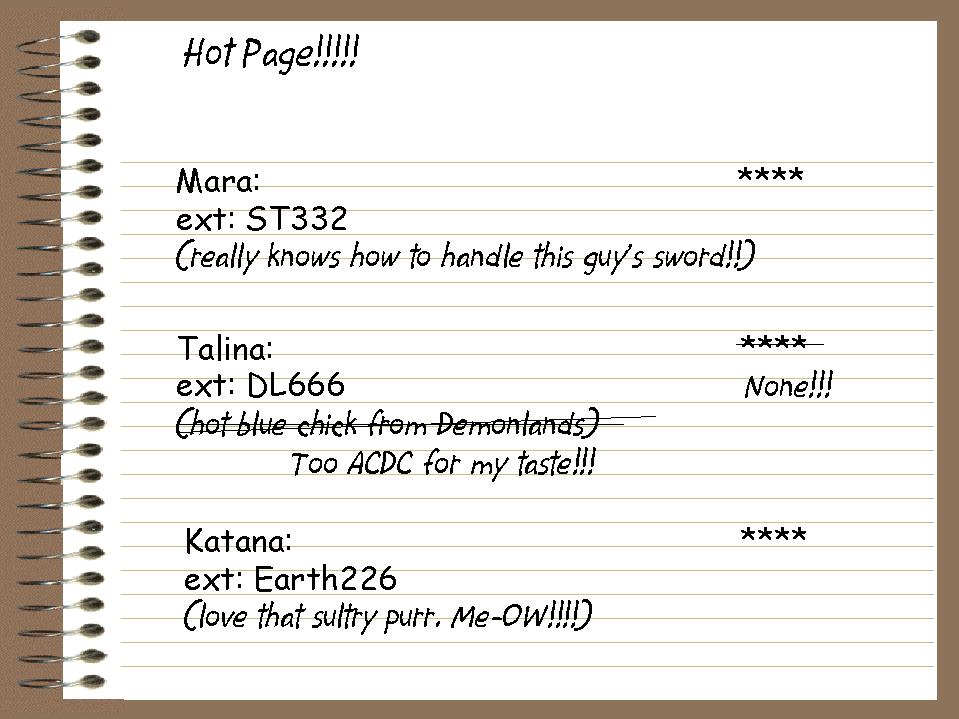 Hot Page!!!!!
Mara: ****
ext: ST332
(really knows how to handle this guy's sword!!)
Talina: ****
ext: DL666 None!!!
(hot blue chick from Demonlands)
Too ACDC for my taste!!!
Katana: ****
ext: Earth226
(love that sultry purr. Me-OW!!!!)